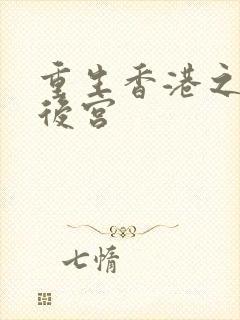 重生香港之
後宮
七惰